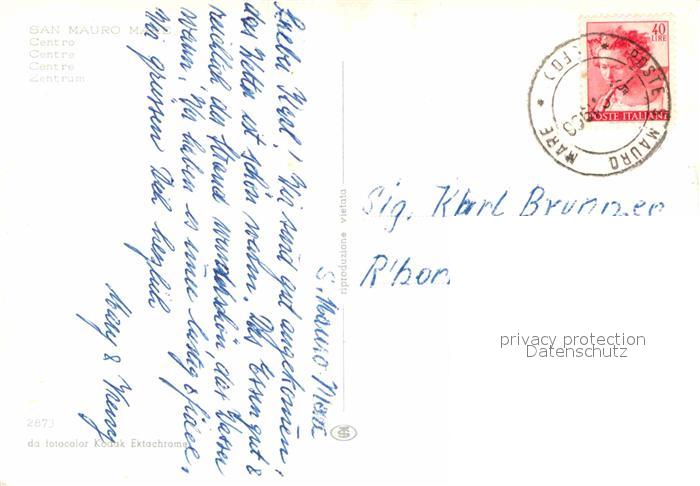 SAN MAURO MARE
Centro
Centre
Centre
Zentrum
40
LIRE
POSTE ITALIANE
POSTE S. MAURO MARE * (FO) *
S. Mauro Mare
Lieber Karl! Wir sind gut angekommen,
das Wetter ist schön warm. Das Essen gut &
reichlich der Strand wunderschön, das Wasser
warm. Wir haben es immer lustig &
Wir grüssen Dich herzlich
&
Sig. Karl Brunner
riproduzione vietata
privacy protection
Datenschutz
2873
da fotocolor Kodak Ektachrome